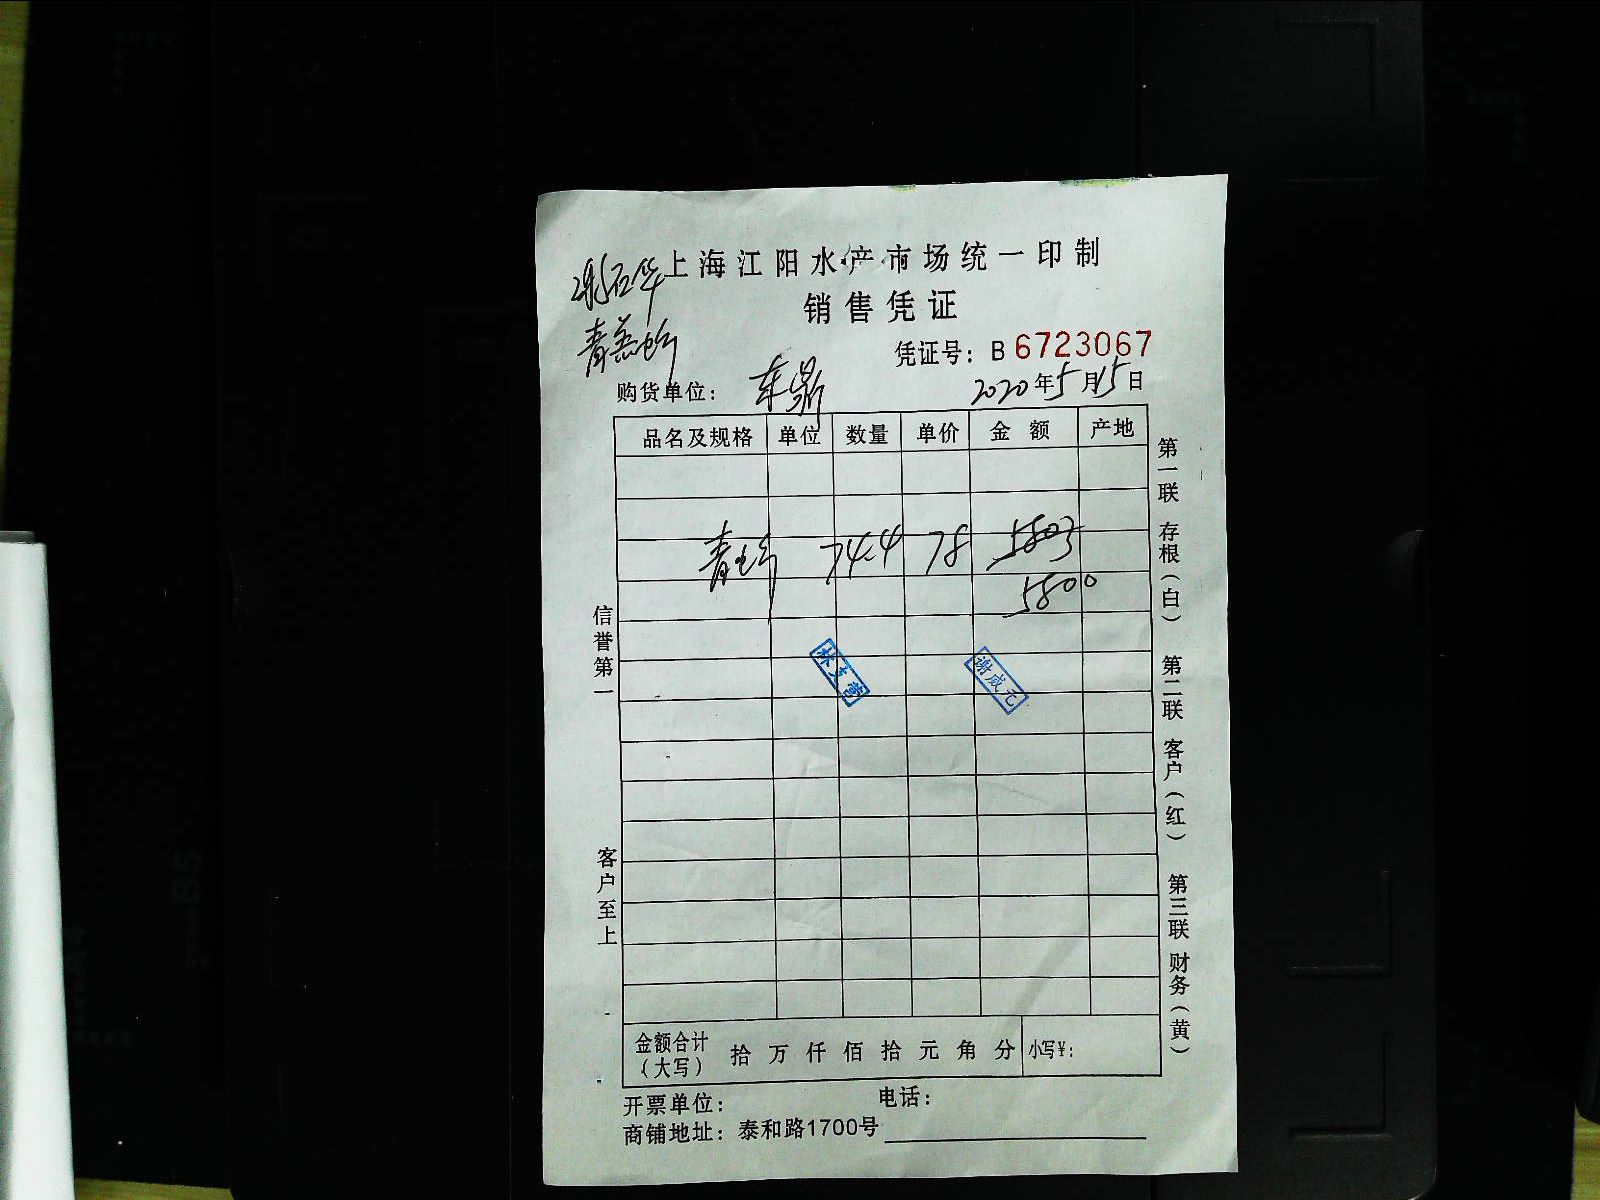 上海江阳水产市场统一印制
销售凭证
凭证号：B 6723067
购货单位： 东鼎
2020年5月15日
品名及规格 单位 数量 单价 金额 产地
青 74.4 78 5803
5800
林支营 谢成元
信誉第一
客户至上
第一联 存根（白） 第二联 客户（红） 第三联 财务（黄）
金额合计（大写） 拾 万 仟 佰 拾 元 角 分 小写¥：
开票单位： 电话：
商铺地址：泰和路1700号